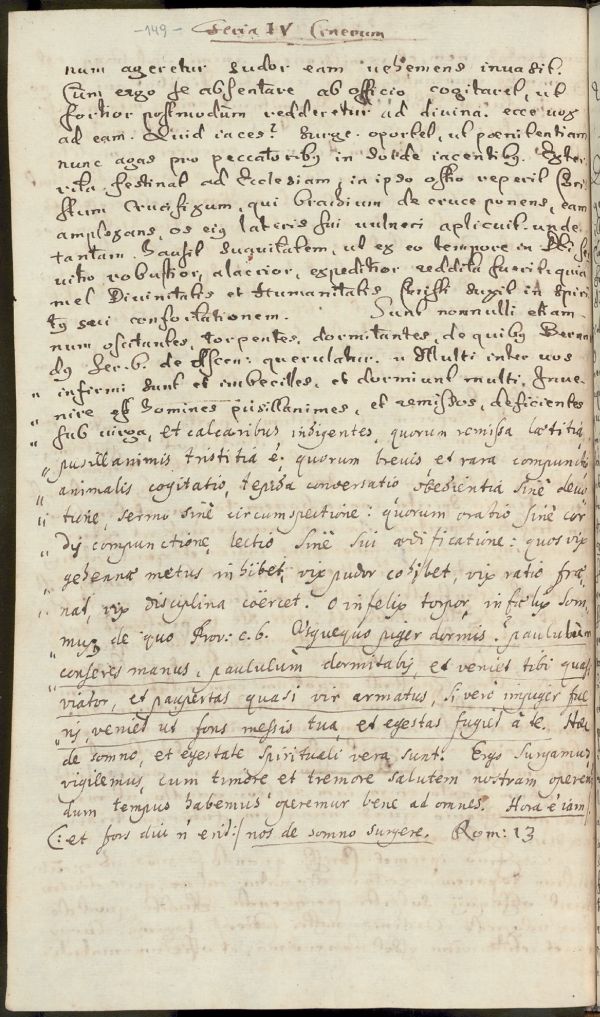 -149- Feria IV Cinerum
num ageretur sudor eam uehemens inuasit.
Cum ergo se absentare ab officio cogitaret, ut
fortior postmodum redderetur ad divina. ecce uox
ad eam. Quid iaces? Surge. oportet, ut pœnitentiam
nunc agas pro peccatoribꝫ in sorde iacentibꝫ. Exter-
rita festinat ad Ecclesiam, in ipso ostio reperit Chri-
stum Crucifixum, qui bracchium de cruce ponens, eam
amplexans, os eiꝫ lateris sui uulneri aplicuit. unde
tantam hausit suauitatem, ut ex eo tempore in Dei ser-
uitio robustior, alacrior, expeditior reddita fuerit. quia
mel Divinitatis et Humanitatis Christi suxit in Spiri
tꝫ sui confortationem. Sunt nonnulli etiam-
num oscitantes, torpentes, dormitantes, de quibꝫ Bernar
dꝫ Ser. 6. de Ascen: querulatur. „ Multi inter uos
„ infirmi sunt et imbecilles, et dormiunt multi. Inue-
„ nire est homines pusillanimes, et remissos, deficientes
„ sub uirga, et calcaribus indigentes, quorum remissa lætitia,
„ pusillanimis tristitia ē, quorum breuis, et rara compunctio,
„ animalis cogitatio, tepida conversatio obedientia sinē deuo
„ tione, sermo sinē circumspectione: quorum oratio sinē cor
„ dis compunctione, lectio sinē sui ædificatione: quos vix
„ gehennæ metus inhibet, vix pudor cohibet, vix ratio fræ
„ nat, vix disciplina coërcet. O infelix torpor, infælix som
„ nus, de quo Prov: c. 6. Usquequo piger dormis? paululum
„ conseres manus, paululum dormitabis, et veniet tibi quasi
„ viator, et paupertas quasi vir armatus, si verò impiger fue
„ ris, veniet ut fons messis tua, et egestas fugiet à te. Hæc
de somno, et egestate spirituali vera sunt. Ergo surgamus
vigilemus, cum timore et tremore salutem nostram operemur
dum tempus habemus operemur bene ad omnes. Hora ē iam
(: et fors diu n̄ erit :) nos de somno surgere. Rom: 13